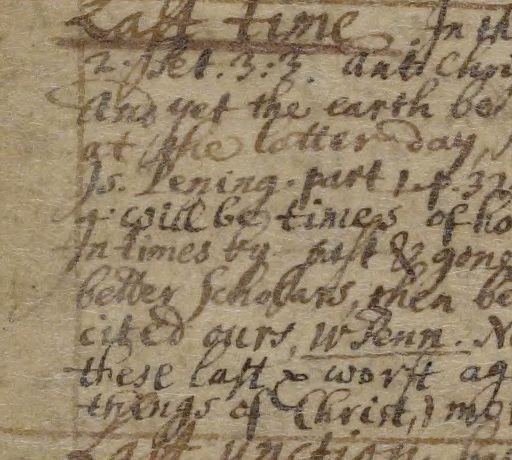 Last time. In th
2. Pet. 3:3. Anti Chri
And yet the earth be
at the latter day,
Js. Pening. part 1. p. 32
q. will be times of ho
In times by past & gone
better Scholars, then be
cited ours, W Penn. No
these last & worst ag
things of Christ,) mor
Last unction.